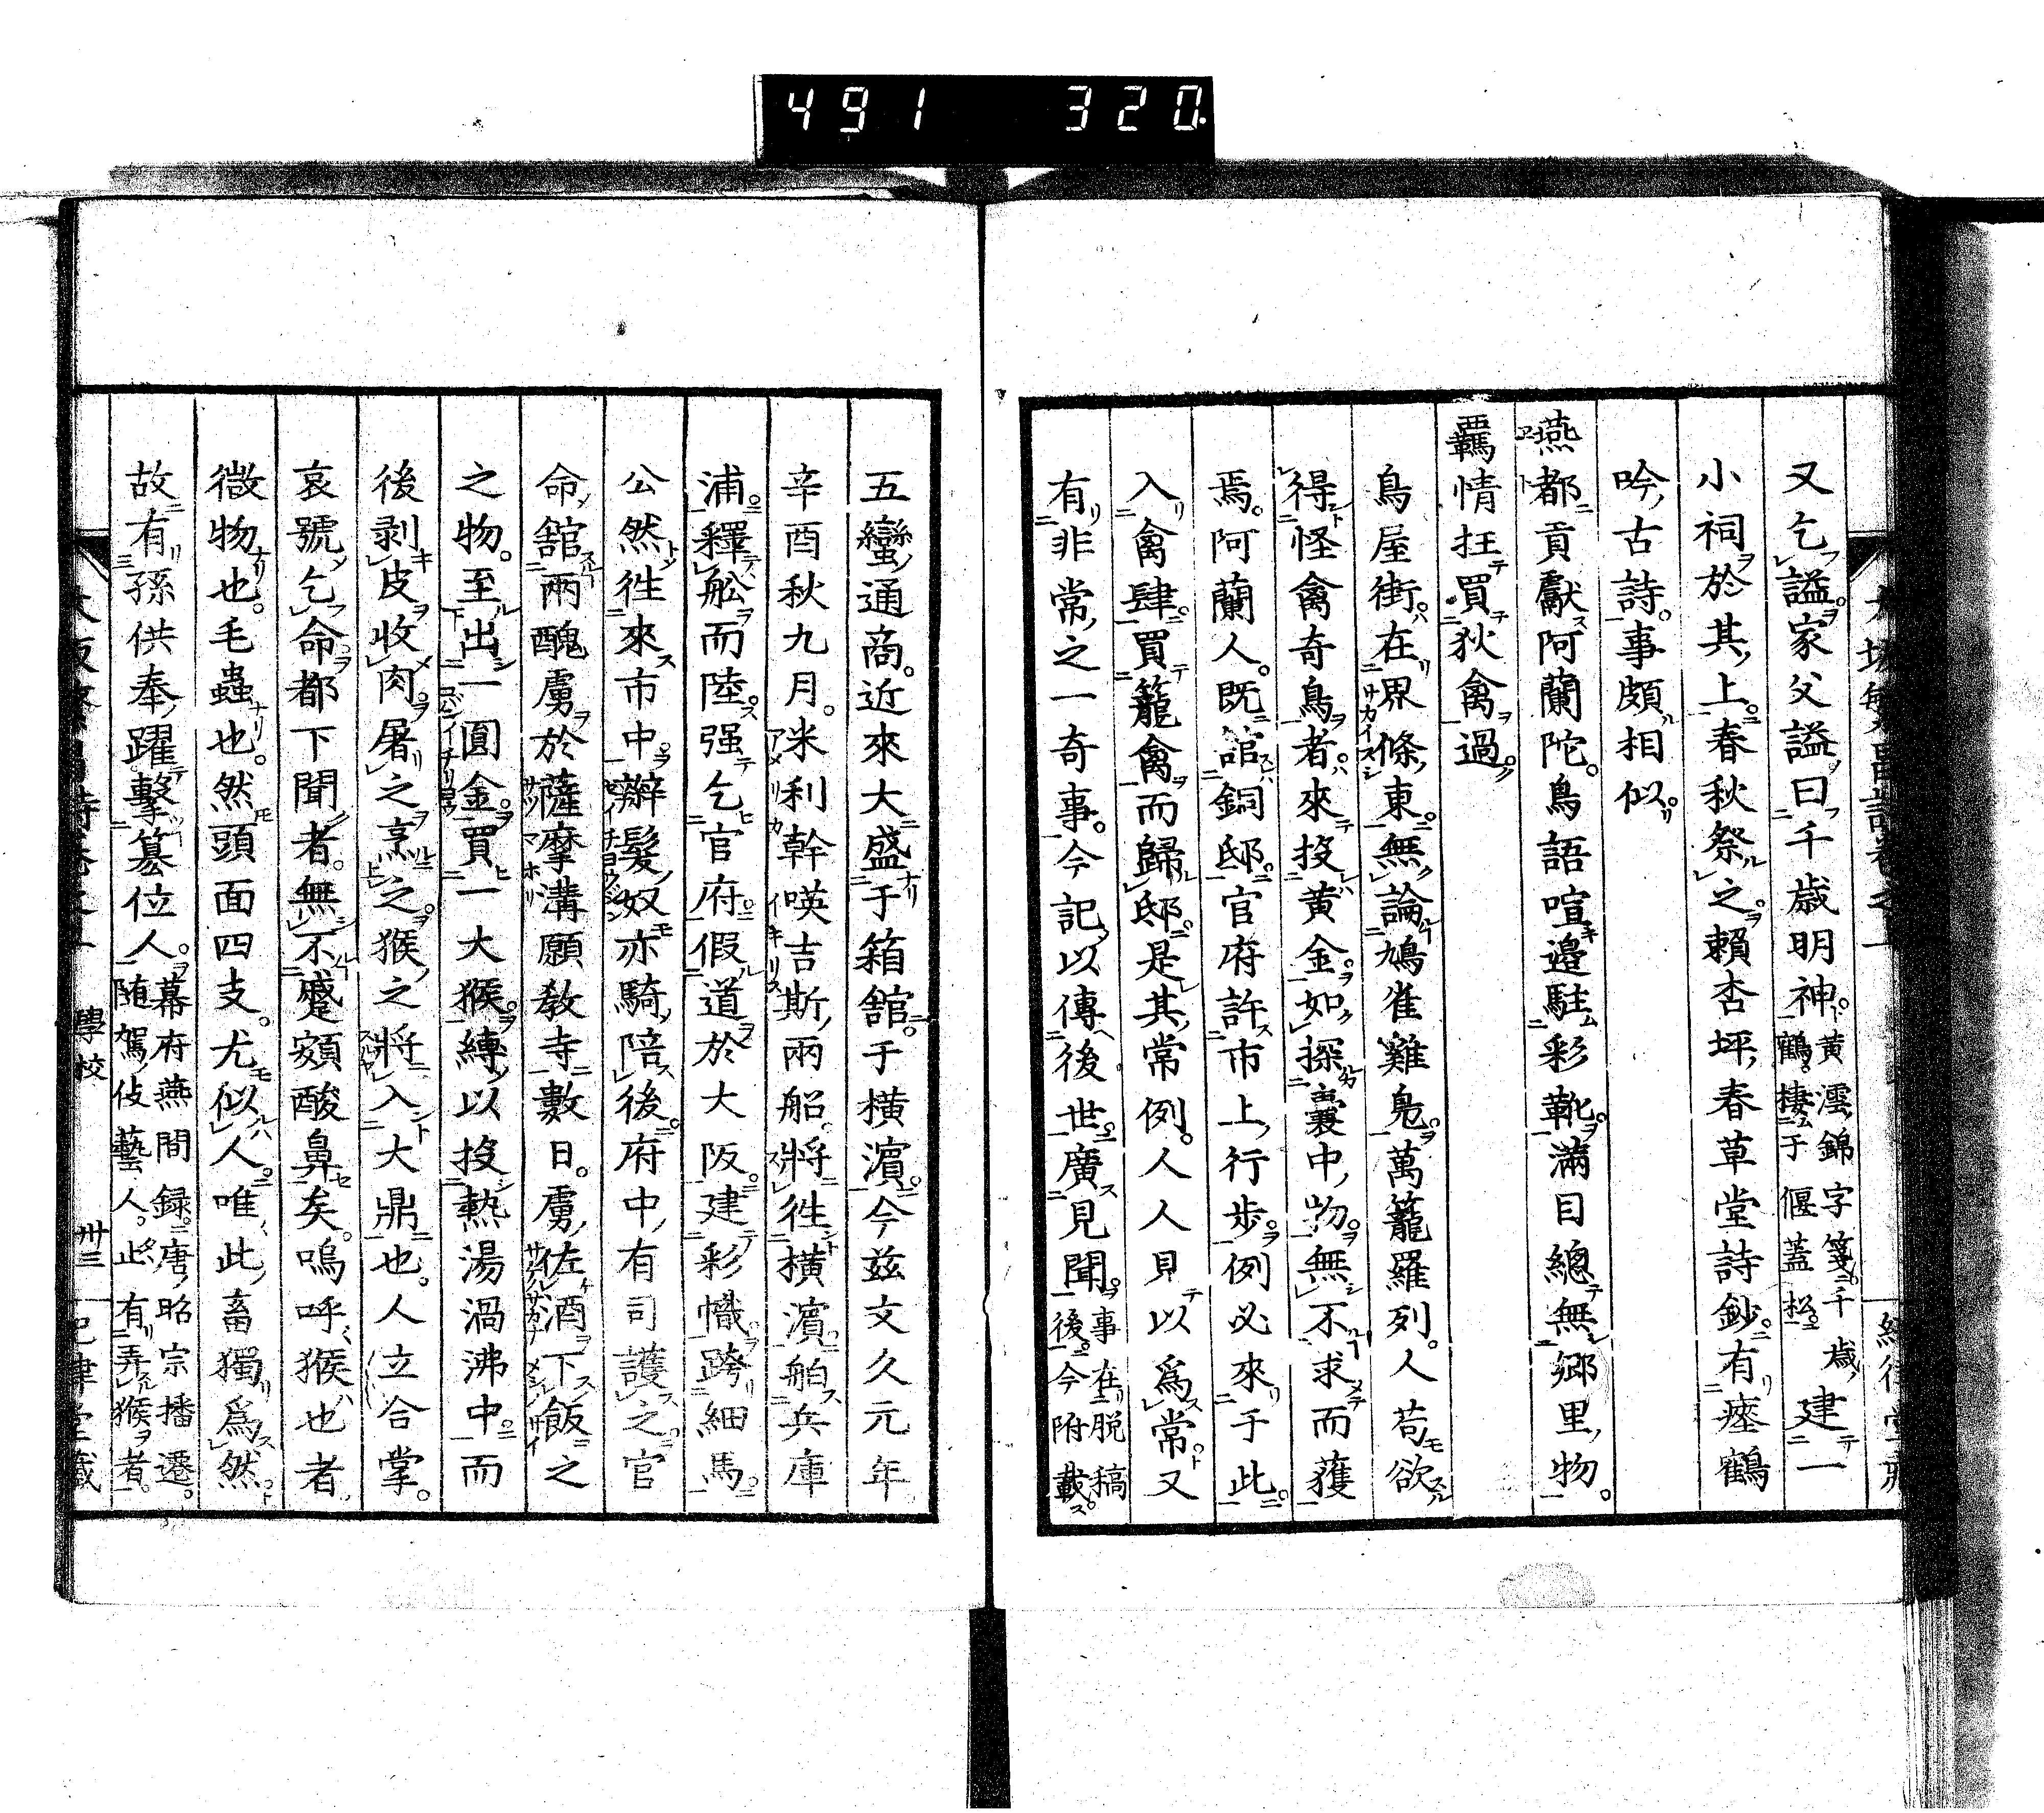 491 320
又乞謚家父謚曰千歳明神黄澐錦字箋千歳鶴棲于偃蓋松建一
小祠於其上春秋祭之賴杏坪春草堂詩鈔有瘞鶴
吟古詩事頗相似
燕都貢獻阿蘭陀鳥語喧邉駐彩靴滿目總無郷里物
羈情狂買狄禽過
鳥屋街在界條東無論鳩雀雞鳧萬籠羅列人苟欲
得怪禽奇鳥者來投黄金如探囊中物無不求而獲
焉阿蘭人既舘銅邸官府許市上行歩例必來于此
入禽肆買籠禽而歸邸是其常例人人見以爲常又
有非常之一奇事今記以傳後世廣見聞事在脱稿後今附載
五蠻通商近來大盛于箱舘于横濵今茲文久元年
辛酉秋九月米利幹暎吉斯兩船將徃横濵舶兵庫
浦釋舩而陸强乞官府假道於大阪建彩幟跨細馬
公然徃來市中辮髮奴亦騎陪後府中有司護之官
命舘兩醜虜於薩摩溝願教寺數日虜佐酒下飯之
之物至出一圓金買一大猴縛以投熱湯渦沸中而
後剥皮收肉屠之烹之猴之將入大鼎也人立合掌
哀號乞命都下聞者無不蹙額酸鼻矣嗚呼猴也者
微物也毛蟲也然頭面四支尤似人唯此畜獨爲然
故有孫供奉躍擊簒位人幕府燕間録唐昭宗播遷随駕伎藝人止有弄猴者
學校 卅三